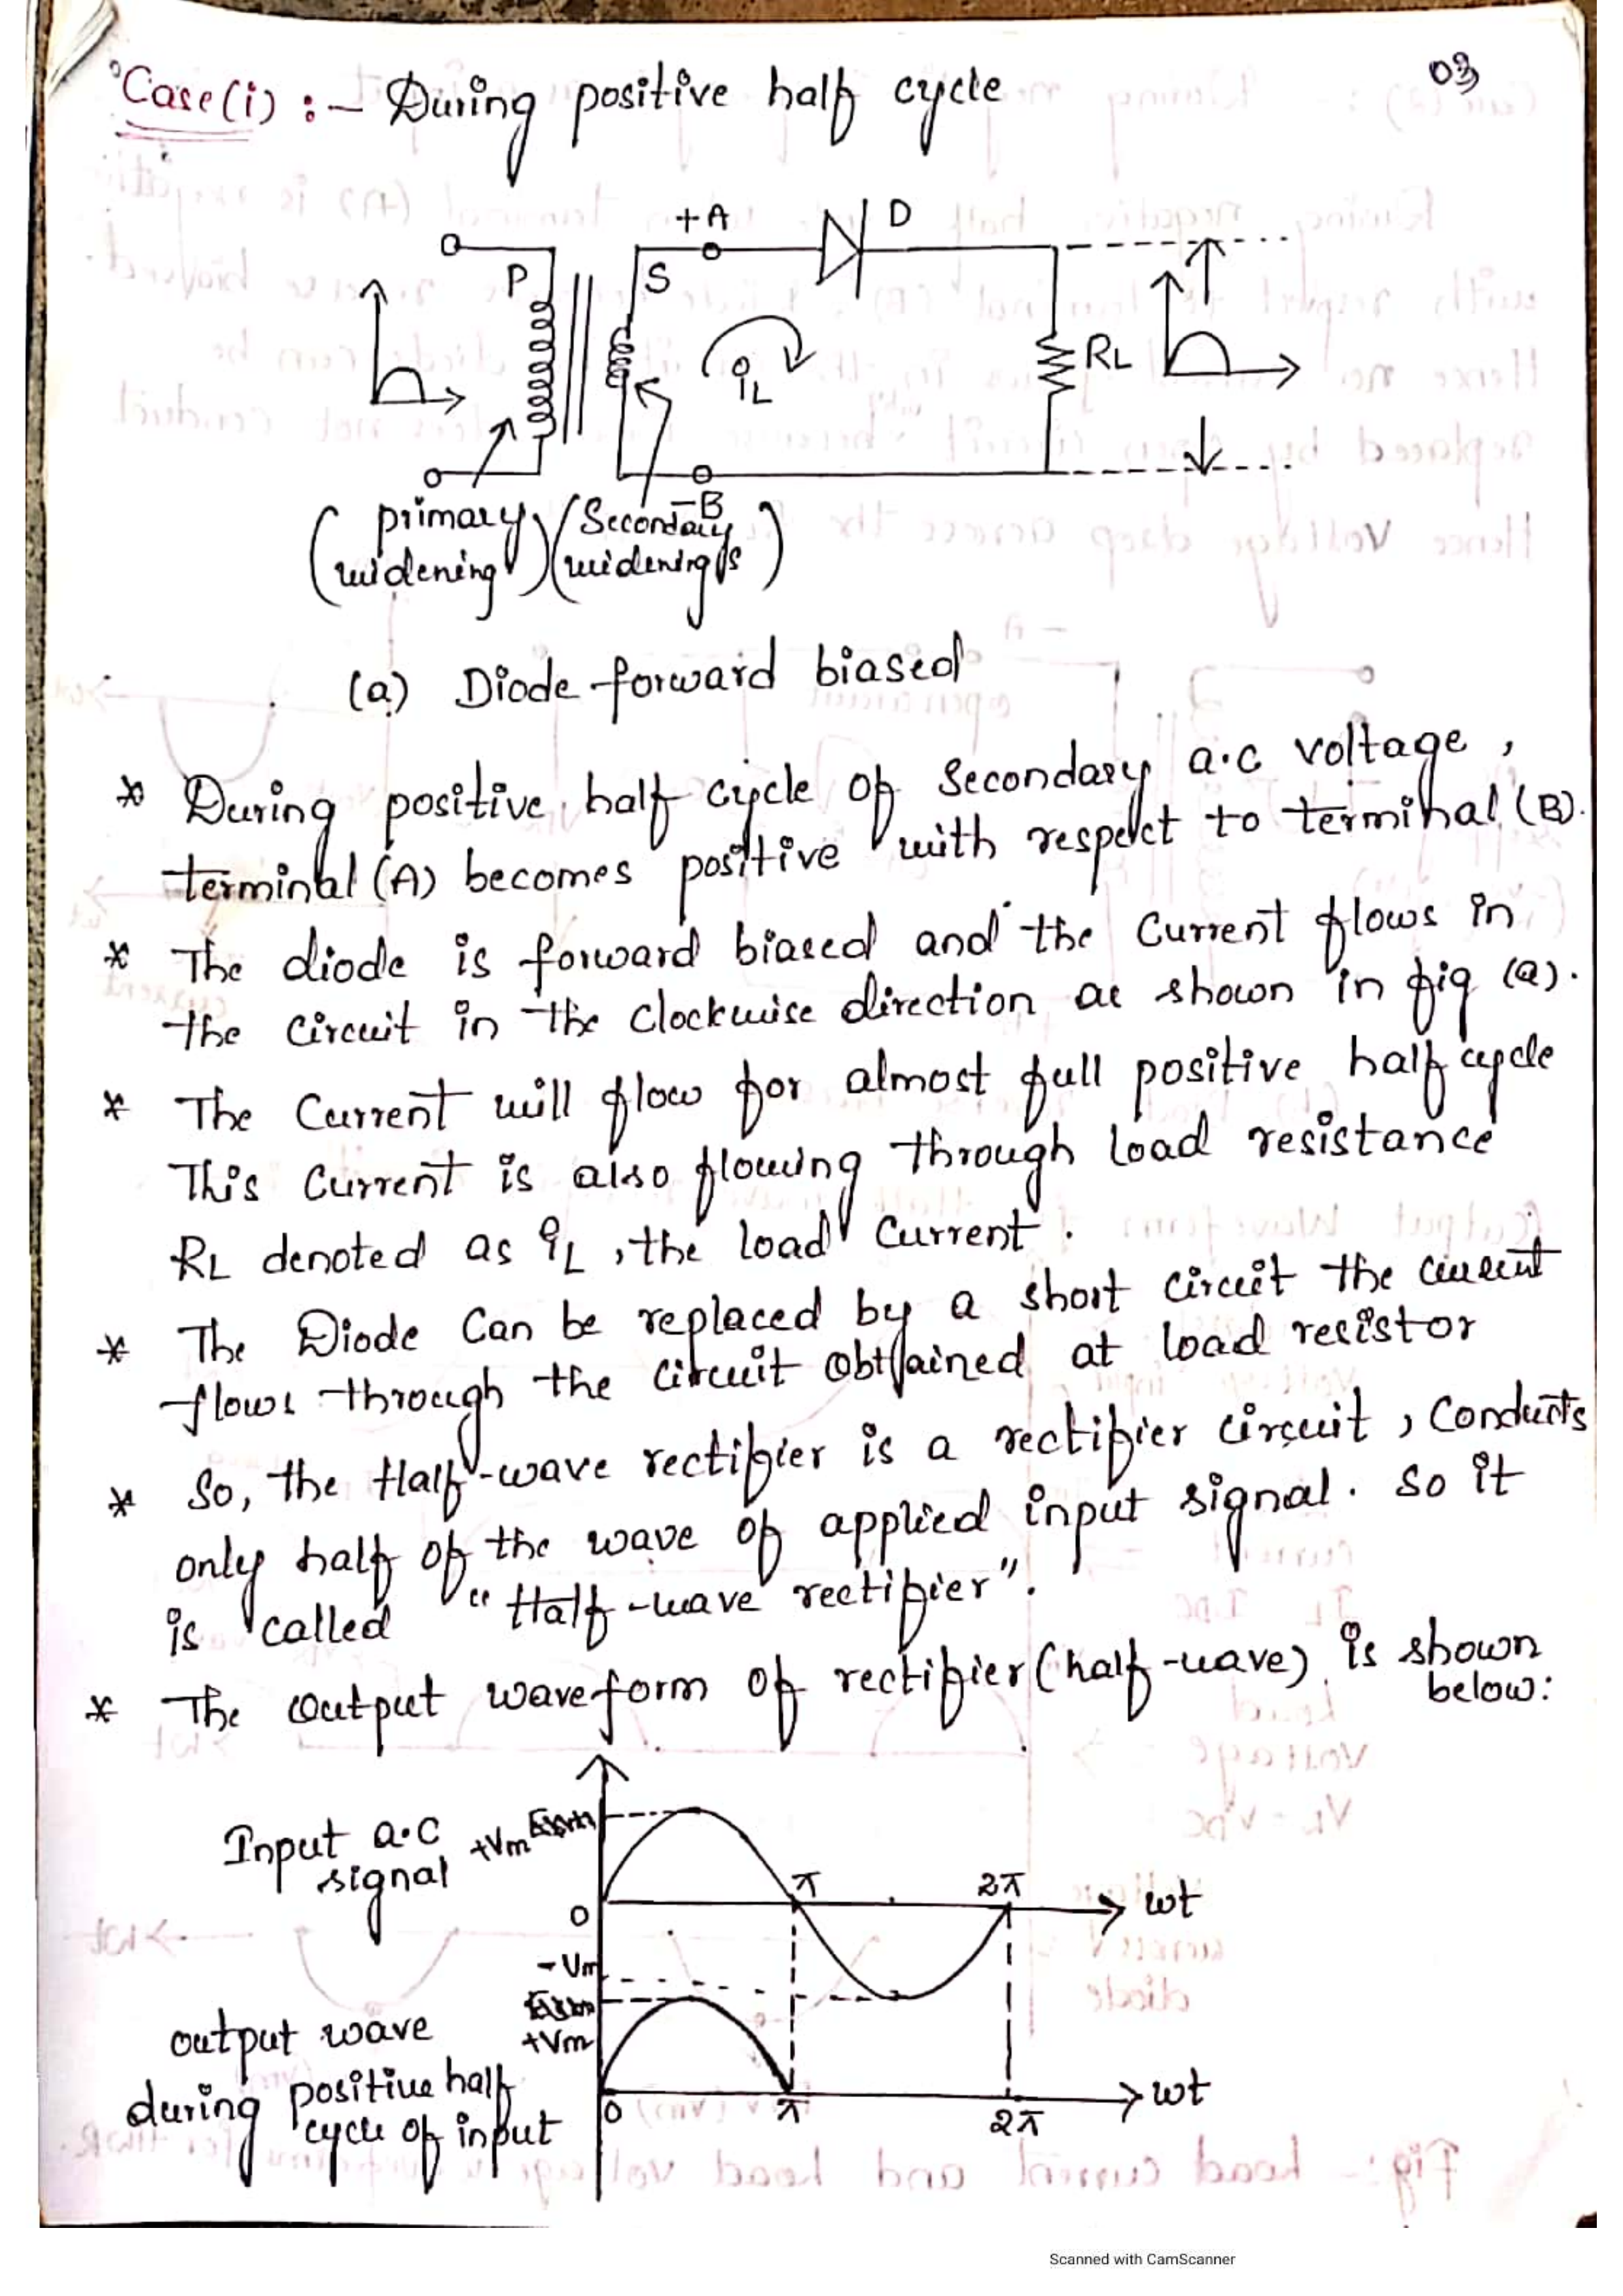 03
Case(i) :- During positive half cycle
+A
D
P
S
iL
RL
-B
(primary widening) (Secondary widenings)
(a) Diode forward biased
* During positive half cycle of Secondary a.c voltage,
terminal (A) becomes positive with respect to terminal (B).
* The diode is forward biased and the Current flows in
the circuit in the clockwise direction as shown in fig (a).
* The Current will flow for almost full positive half cycle
This Current is also flowing through load resistance
RL denoted as iL, the load Current.
* The Diode Can be replaced by a short circuit the current
flows through the circuit obtained at load resistor
* So, the Half-wave rectifier is a rectifier circuit, Conducts
only half of the wave of applied input signal. So it
is called "Half-wave rectifier".
* The output waveform of rectifier (half-wave) is shown
below:
Input a.c
signal
+Vm
π
2π
wt
0
-Vm
+Vm
output wave
during positive half
cycle of input
0
π
2π
wt
Scanned with CamScanner